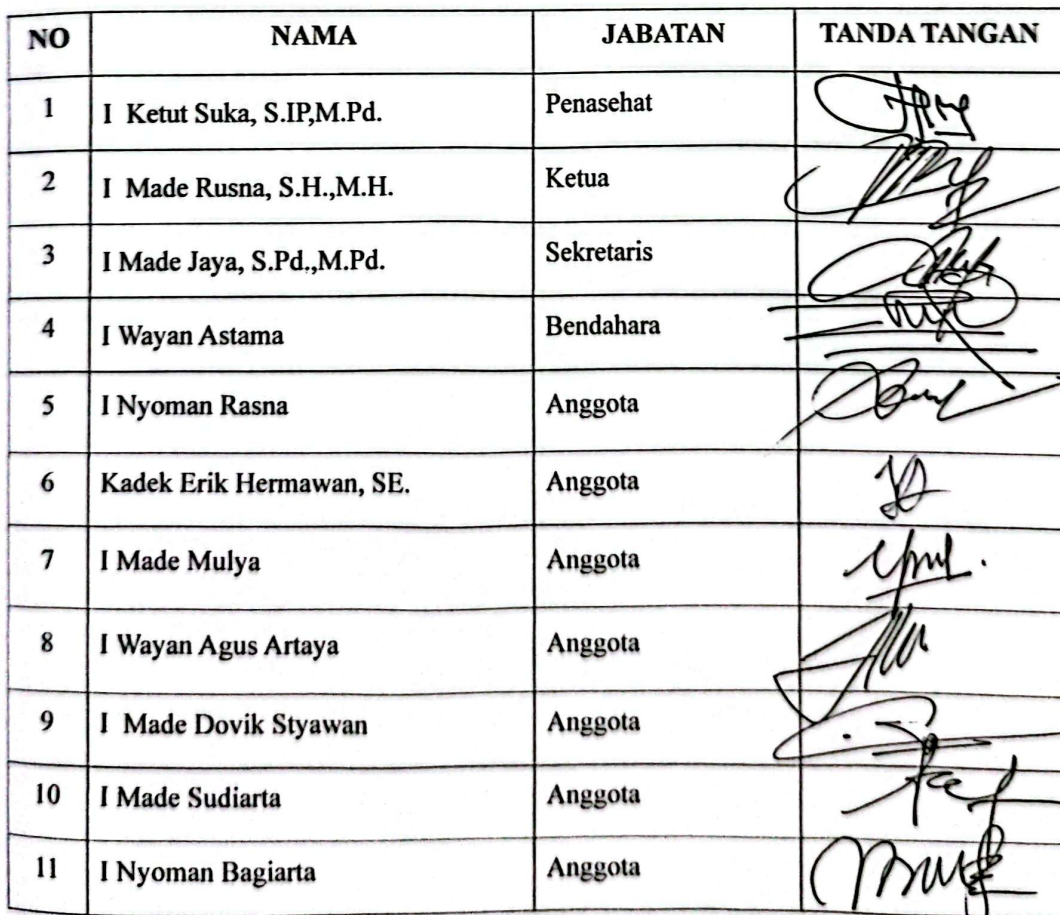 NO NAMA JABATAN TANDA TANGAN
1 I Ketut Suka, S.IP,M.Pd. Penasehat
2 I Made Rusna, S.H.,M.H. Ketua
3 I Made Jaya, S.Pd.,M.Pd. Sekretaris
4 I Wayan Astama Bendahara
5 I Nyoman Rasna Anggota
6 Kadek Erik Hermawan, SE. Anggota
7 I Made Mulya Anggota
8 I Wayan Agus Artaya Anggota
9 I Made Dovik Styawan Anggota
10 I Made Sudiarta Anggota
11 I Nyoman Bagiarta Anggota